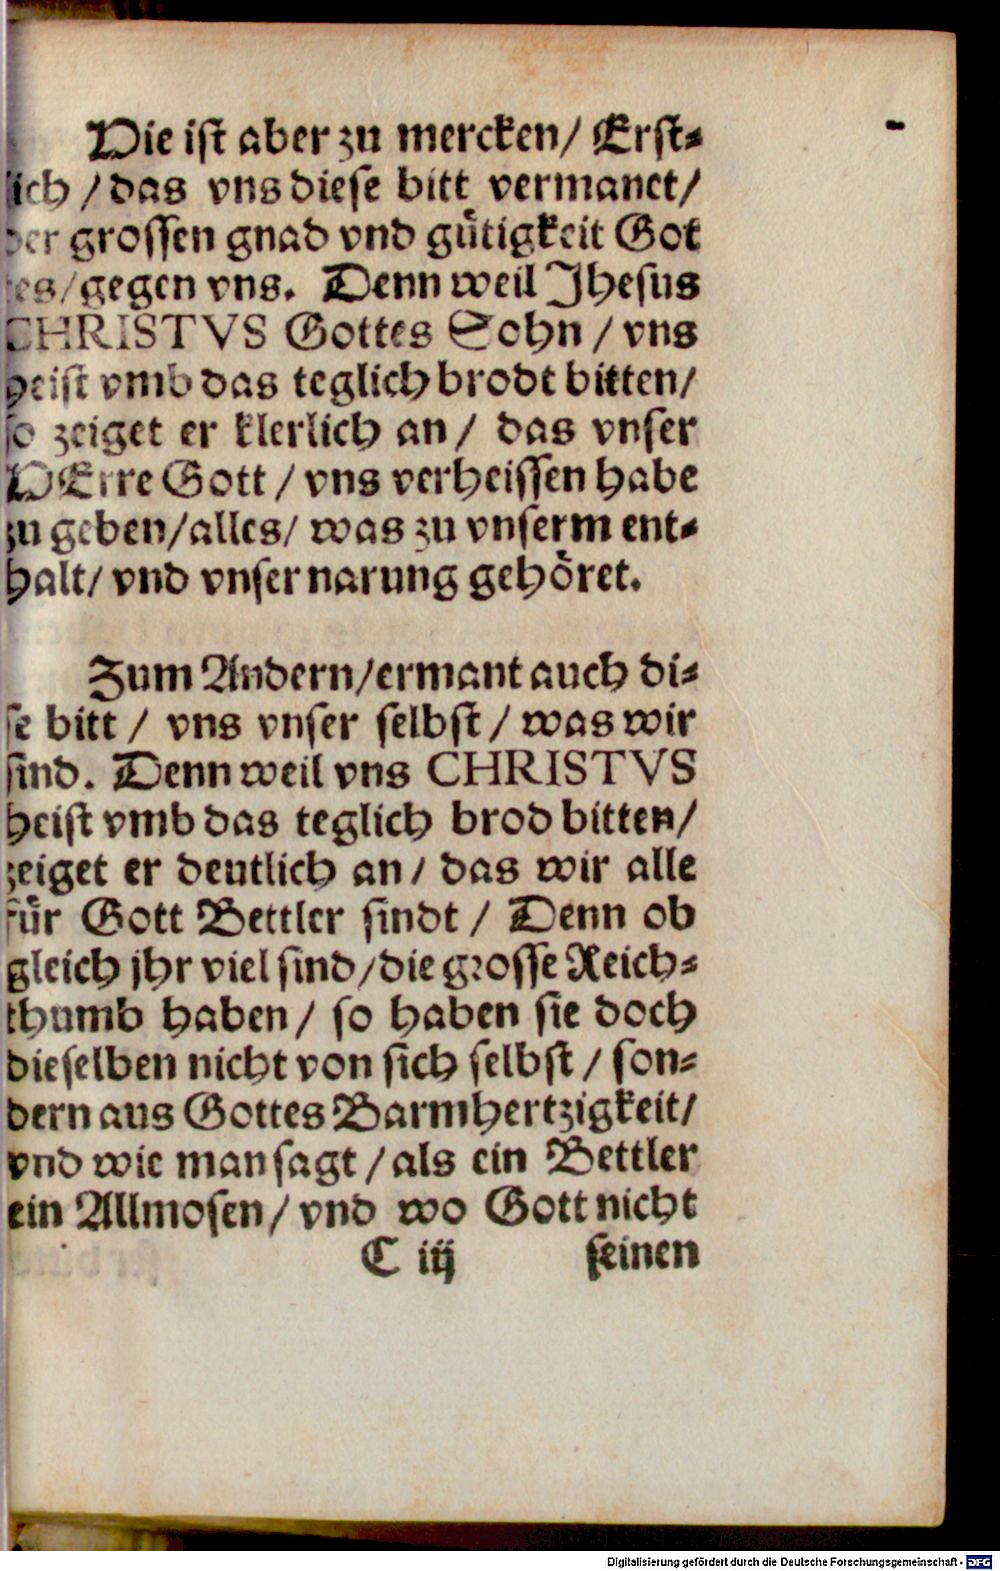 Hie ist aber zu mercken/ Erst⸗
lich /das vns diese bitt vermanet/
der grossen gnad vnd gütigkeit Got
tes/gegen vns. Denn weil Jhesus
CHRISTVS Gottes Sohn / vns
heist vmb das teglich brodt bitten/
so zeiget er klerlich an / das vnser
HErre Gott / vns verheissen habe
zu geben/alles/ was zu vnserm ent⸗
halt/ vnd vnser narung gehöret.
Zum Andern/ermant auch di⸗
se bitt / vns vnser selbst / was wir
sind. Denn weil vns CHRISTVS
heist vmb das teglich brod bitten/
zeiget er deutlich an / das wir alle
für Gott Bettler sindt / Denn ob
gleich jhr viel sind/die grosse Reich⸗
thumb haben / so haben sie doch
dieselben nicht von sich selbst / son⸗
dern aus Gottes Barmhertzigkeit/
vnd wie man sagt / als ein Bettler
ein Allmosen / vnd wo Gott nicht
C iij seinen
Digitalisierung gefördert durch die Deutsche Forschungsgemeinschaft - DFG